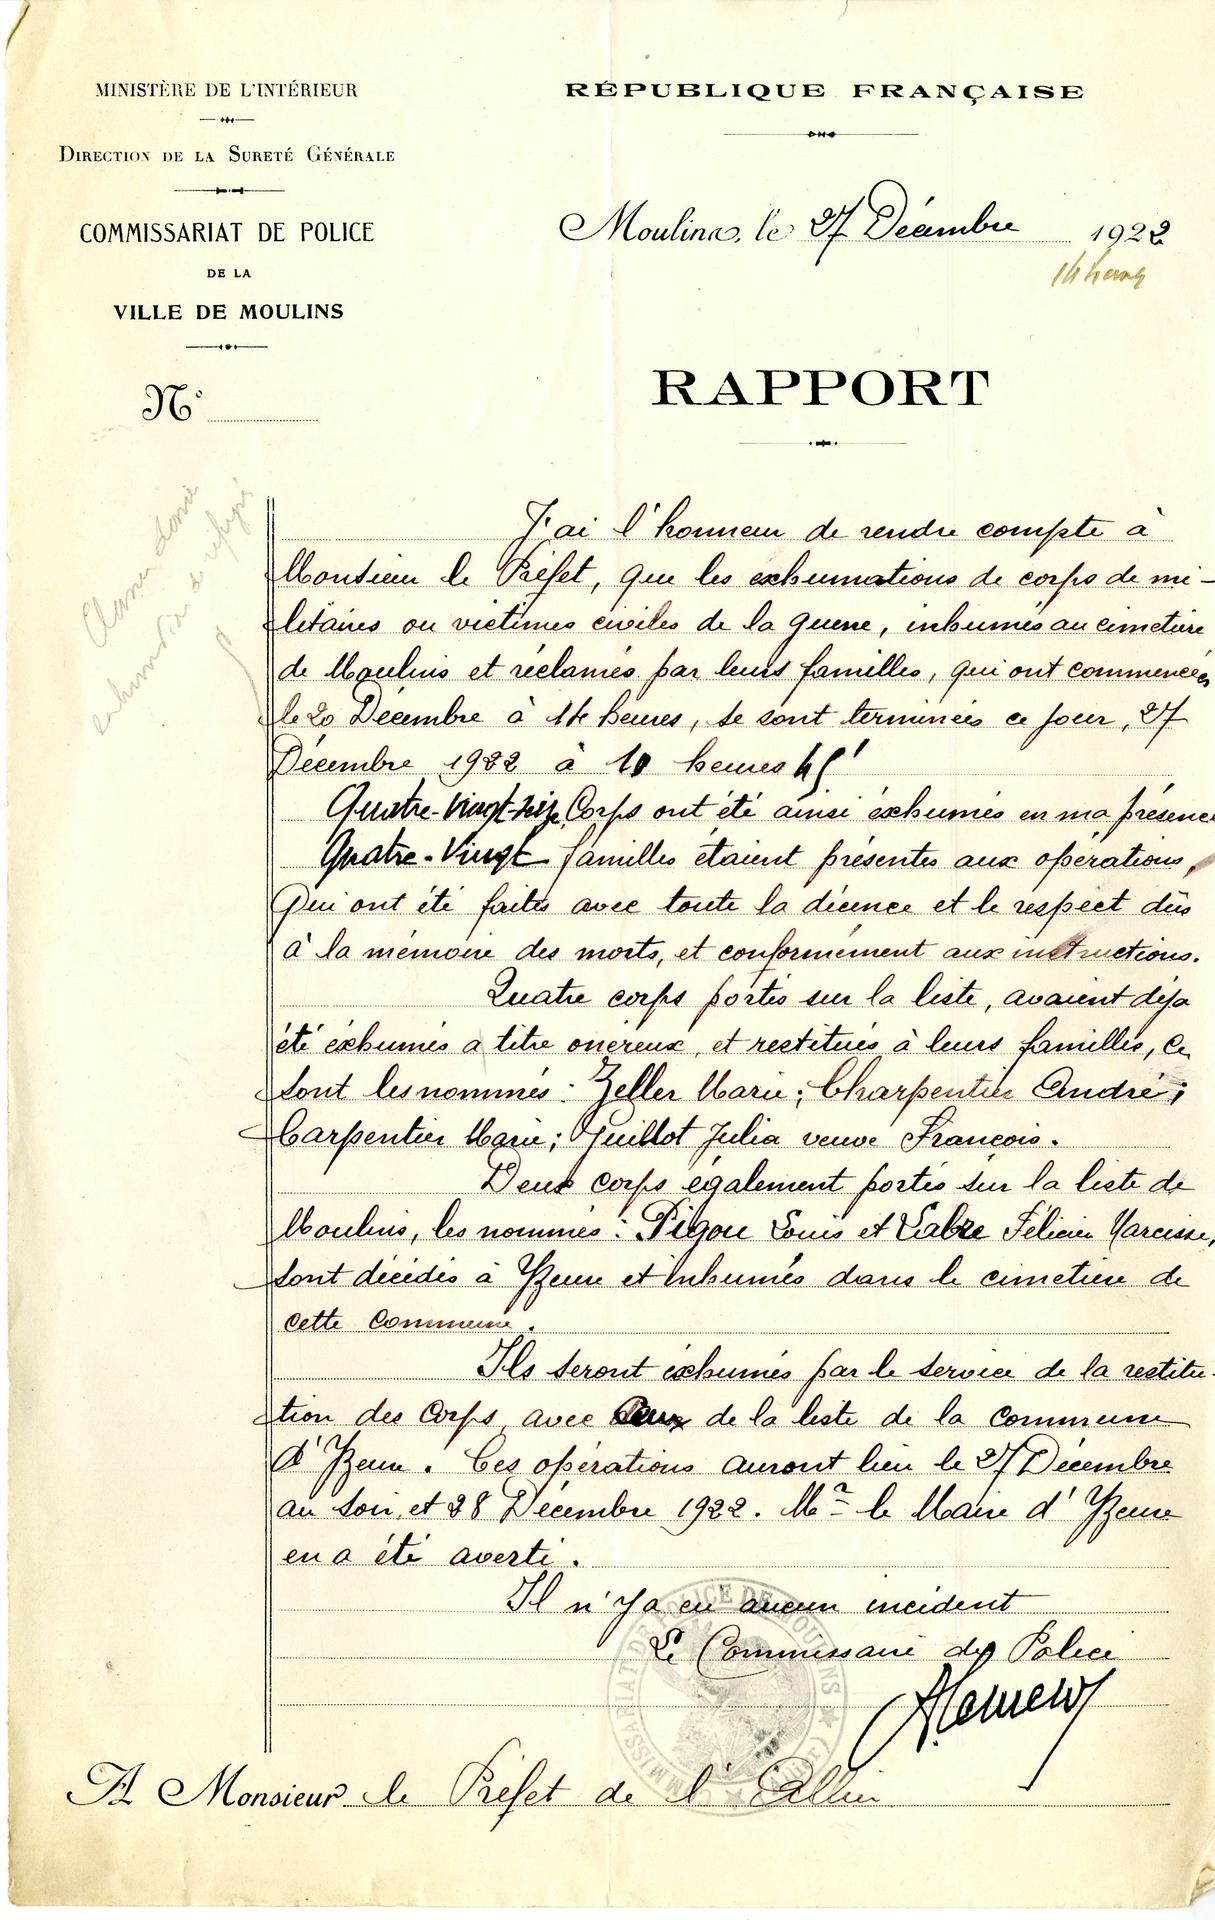 MINISTÈRE DE L'INTÉRIEUR
DIRECTION DE LA SURETÉ GÉNÉRALE
COMMISSARIAT DE POLICE
DE LA
VILLE DE MOULINS
N°
RÉPUBLIQUE FRANÇAISE
Moulins, le 27 Décembre 1922
RAPPORT
J'ai l'honneur de rendre compte à
Monsieur le Préfet, que les exhumations de corps de mi-
litaires ou victimes civiles de la guerre, inhumés au cimetière
de Moulins et réclamés par leurs familles, qui ont commencées
le 20 Décembre à 14 heures, se sont terminées ce jour, 27
Décembre 1922 à 10 heures 45'
Quatre-Vingt-seize Corps ont été ainsi éxhumés en ma présence
Quatre-Vingt familles étaient présentes aux opérations,
qui ont été faites avec toute la décence et le respect dûs
à la mémoire des morts, et conformément aux instructions.
Quatre corps portés sur la liste, avaient déja
été éxhumés a titre onéreux, et restitués à leurs familles, ce
sont les nommés : Zeller Marie ; Charpentier André ;
Carpentier Marie ; Guillot Julia veuve François.
Deux corps également portés sur la liste de
Moulins, les nommés : Pigou Louis et Labre Félicien Narcisse,
sont décédés à Yzeure et inhumés dans le cimetière de
cette commune.
Ils seront éxhumés par le service de la restitu-
tion des Corps, avec ceux de la liste de la commune
d'Yzeure. Ces opérations auront lieu le 27 Décembre
au soir, et 28 Décembre 1922. Mr le Maire d'Yzeure
en a été averti.
Il n'y a eu aucun incident
Le Commissaire de Police
COMMISSARIAT DE POLICE DE MOULINS
A Monsieur le Préfet de l'Allier